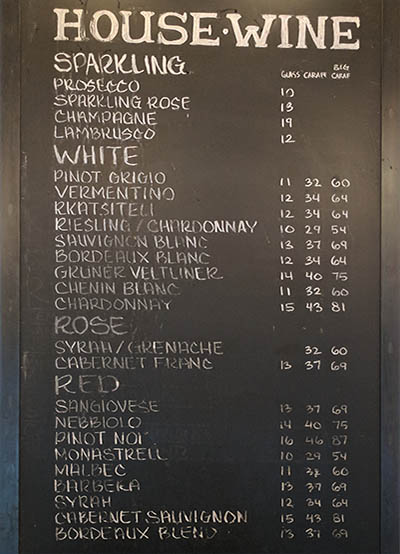 HOUSE·WINE
SPARKLING GLASS CARAF BIG CARAF
PROSECCO 10
SPARKLING ROSE 13
CHAMPAGNE 19
LAMBRUSCO 12
WHITE
PINOT GRIGIO 11 32 60
VERMENTINO 12 34 64
RKATSITELI 12 34 64
RIESLING/CHARDONNAY 10 29 54
SAUVIGNON BLANC 13 37 69
BORDEAUX BLANC 12 34 64
GRUNER VELTLINER 14 40 75
CHENIN BLANC 11 32 60
CHARDONNAY 15 43 81
ROSE
SYRAH/GRENACHE 32 60
CABERNET FRANC 13 37 69
RED
SANGIOVESE 13 37 69
NEBBIOLO 14 40 75
PINOT NOI 16 46 87
MONASTRELL 10 29 54
MALBEC 11 32 60
BARBERA 13 37 69
SYRAH 12 34 64
CABERNET SAUVIGNON 15 43 81
BORDEAUX BLEND 13 37 69